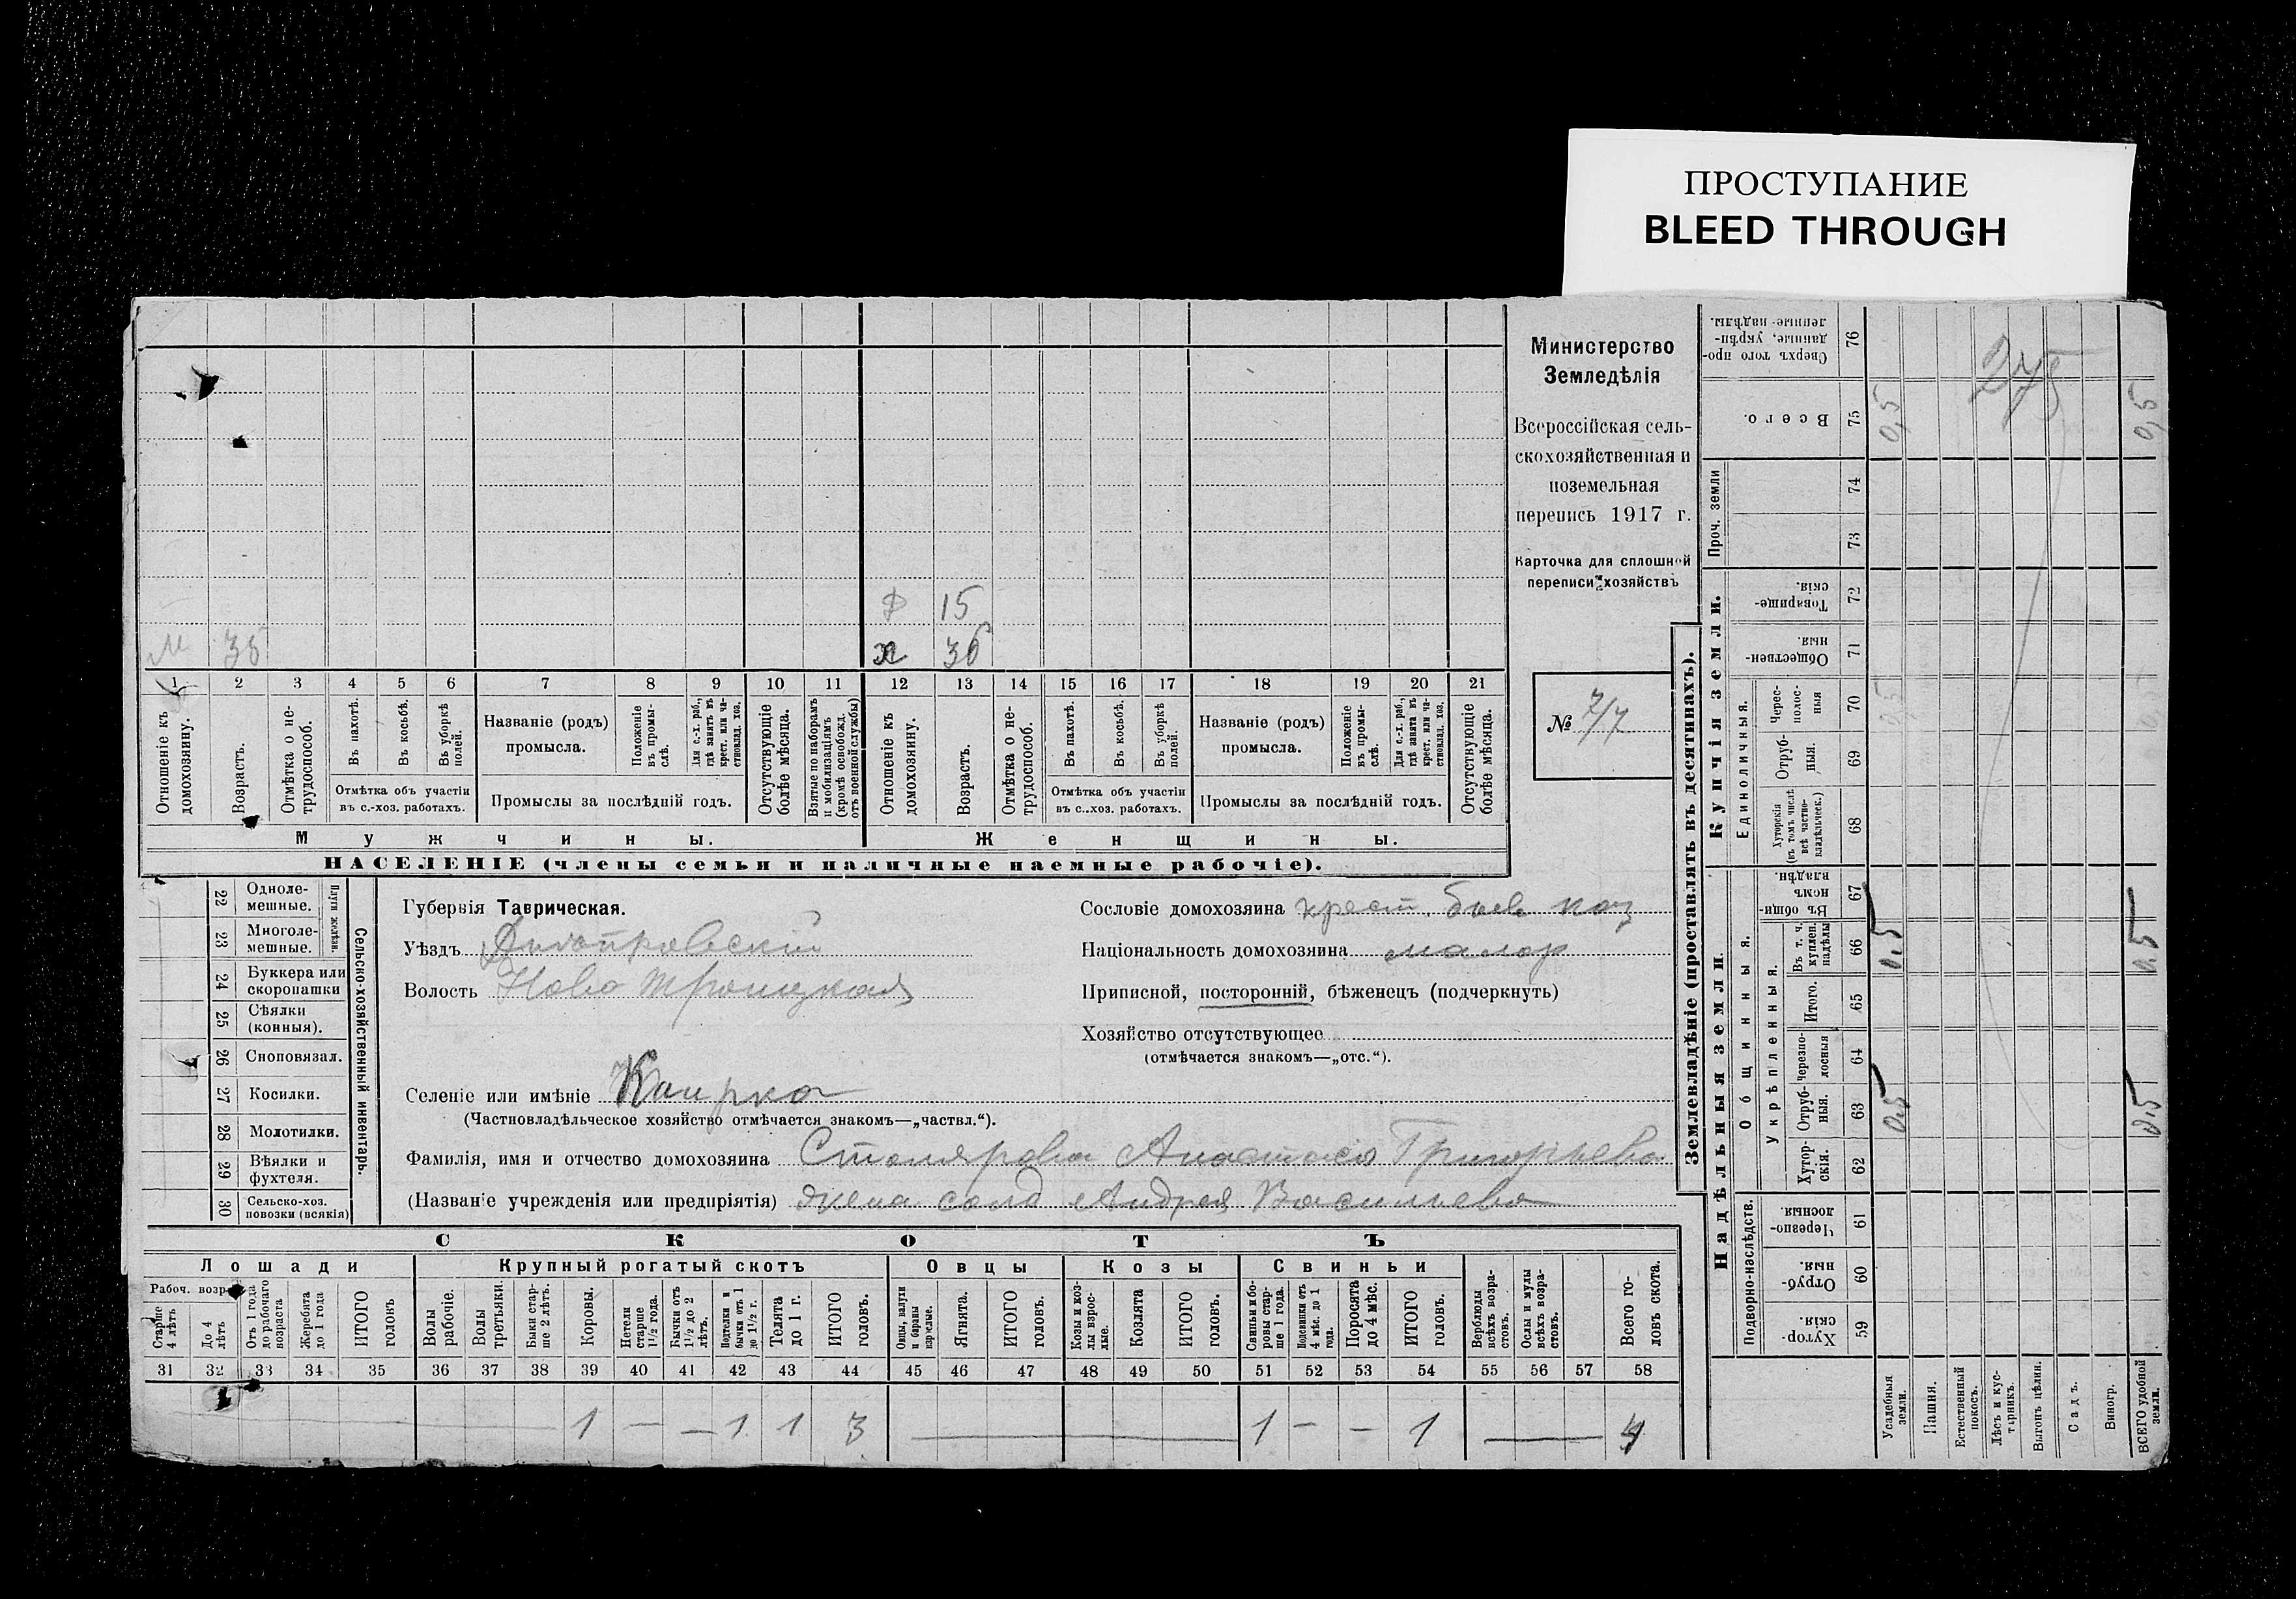 ПРОСТУПАНИЕ
BLEED THROUGH
Министерство
Земледѣлія
Всероссійская сель-
скохозяйственная и
поземельная
перепись 1917 г.
Карточка для сплошной
переписи хозяйствъ
№ 7/7
Ф 15
М 35 ж 36
1 2 3 4 5 6 7 8 9 10 11 12 13 14 15 16 17 18 19 20 21
Отношеніе къ домохозяину.
Возрастъ.
Отмѣтка о не-трудоспособ.
Въ пахотѣ.
Въ косьбѣ.
Въ уборкѣ полей.
Отмѣтка объ участіи
въ с.-хоз. работахъ.
Названіе (родъ)
промысла.
Положеніе въ промы-слѣ.
Для с.-х. раб., гдѣ занятъ въ крест. или ча-стновлад. хоз.
Промыслы за послѣдній годъ.
Отсутствующіе болѣе мѣсяца.
Взятые по наборамъ и мобилизаціямъ (кромѣ освобожд. отъ военной службы)
Отношеніе къ домохозяину.
Возрастъ.
Отмѣтка о не-трудоспособ.
Въ пахотѣ.
Въ косьбѣ.
Въ уборкѣ полей.
Отмѣтка объ участіи
въ с.-хоз. работахъ.
Названіе (родъ)
промысла.
Положеніе въ промы-слѣ.
Для с.-х. раб., гдѣ занята въ крест. или ча-стновлад. хоз.
Промыслы за послѣдній годъ.
Отсутствующіе болѣе мѣсяца.
Мужчины. Женщины.
НАСЕЛЕНІЕ (члены семьи и наличные наемные рабочіе).
Сельско-хозяйственный инвентарь.
Плуги желѣзн.
22 Одноле-мешные.
23 Многоле-мешные.
24 Буккера или скоропашки
25 Сѣялки (конныя).
26 Сноповязал.
27 Косилки.
28 Молотилки.
29 Вѣялки и фухтеля.
30 Сельско-хоз. повозки (всякія)
Губернія Таврическая.
Уѣздъ Днѣпровскій
Волость Ново Троицкая
Селеніе или имѣніе Каирка
(Частновладѣльческое хозяйство отмѣчается знакомъ—„частвл.“).
Фамилія, имя и отчество домохозяина Столярова Анастасія Григорьева
(Названіе учрежденія или предпріятія) жена солд Андрея Васильева
Сословіе домохозяина крест. бывш каз
Національность домохозяина малор
Приписной, посторонній, бѣженецъ (подчеркнуть)
Хозяйство отсутствующее
(отмѣчается знакомъ—„отс.“).
СКОТЪ
Лошади Крупный рогатый скотъ Овцы Козы Свиньи
Рабоч. возр.
Старше 4 лѣтъ
До 4 лѣтъ
Отъ 1 года до рабочаго возраста
Жеребята до 1 года
ИТОГО головъ
Волы рабочіе.
Волы третьяки.
Быки стар-ше 2 лѣтъ.
Коровы.
Нетели старше 1½ года.
Бычки отъ 1½ до 2 лѣтъ.
Подтелки и бычки отъ 1 до 1½ г.
Телята до 1 г.
ИТОГО головъ.
Овцы, валухи и бараны взрослые.
Ягнята.
ИТОГО головъ.
Козы и коз-лы взрос-лые.
Козлята
ИТОГО головъ.
Свиньи и бо-ровы стар-ше 1 года.
Подсвинки отъ 4 мѣс. до 1 года.
Поросята до 4 мѣс.
ИТОГО головъ.
Верблюды всѣхъ возра-стовъ.
Ослы и мулы всѣхъ возра-стовъ.
Всего го-ловъ скота.
31 32 33 34 35 36 37 38 39 40 41 42 43 44 45 46 47 48 49 50 51 52 53 54 55 56 57 58
1 — — 1 1 3 — 1 – – 1 — 4
Землевладѣніе (проставлять въ десятинахъ).
Купчія земли.
Надѣльныя земли.
Проч. земли
Единоличныя.
Общинныя.
Укрѣпленныя.
Подворно-наслѣдств.
76 Сверхъ того про-данные, укрѣп-ленные надѣлы.
75 Всего.
74
73
72 Товарище-скія
71 Обществен-ныя.
70 Черес-полос-ныя
69 Отруб-ныя.
68 Хуторскія (въ томъ числѣ всѣ частно-владѣльческ.)
67 Въ общи-номъ владѣн.
66 Въ т. ч. куплен. надѣлы
65 Итого.
64 Черезпо-лосныя
63 Отруб-ныя.
62 Хутор-скія.
61 Черезпо-лосныя.
60 Отруб-ныя.
59 Хутор-скія.
Усадебныя земли.
Пашня.
Естественный покосъ.
Лѣсъ и кус-тарникъ.
Выгонъ цѣлин.
Садъ.
Виногр.
ВСЕГО удобной земли.
0,5 0,5
0,5 0,5
0,5 0,5